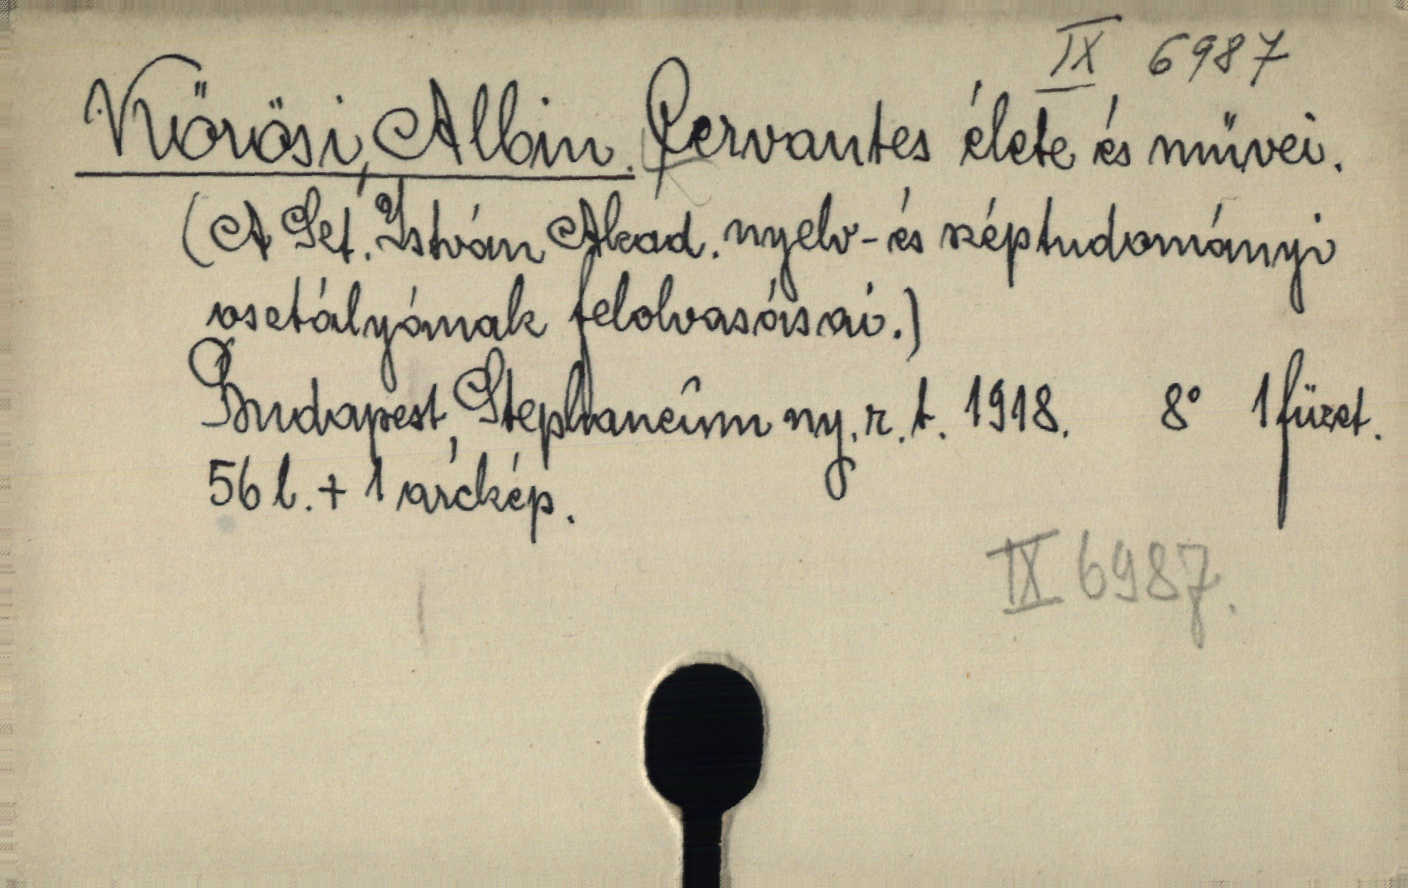 IX 6987
Kőrösi, Albin. Cervantes élete és művei.
(A Szt. István Akad. nyelv- és széptudományi
osztályának felolvasásai.)
Budapest, Stephaneum ny. r. t. 1918. 8° 1 füzet.
56 l. + 1 arckép.
IX 6987.